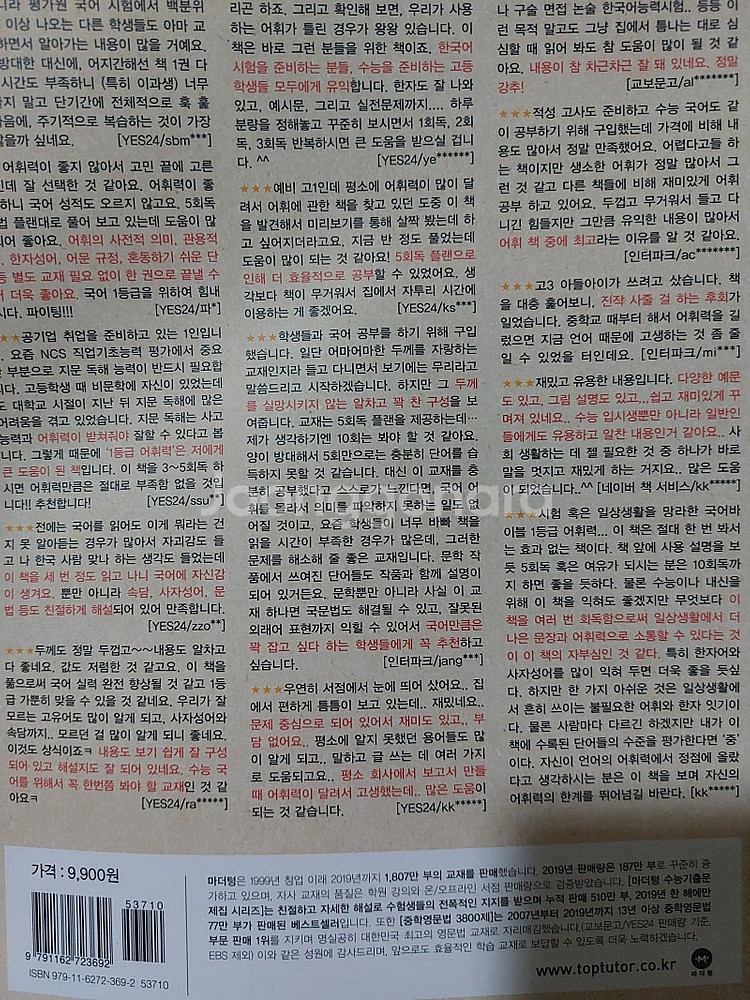 니라 평가원 국어 시험에서 백분위
이상 나오는 다른 학생들도 아마 교
하면서 알아가는 내용이 많을 거예요.
방대한 대신에, 어지간해선 책 1권 다
시간도 부족하니 (특히 이과생) 너무
지 말고 단기간에 전체적으로 훅 훑
음에, 주기적으로 복습하는 것이 가장
않을까 싶네요. [YES24/sbm***]
어휘력이 좋지 않아서 고민 끝에 고른
인데 잘 선택한 것 같아요. 어휘력이 좋
하니 국어 성적도 오르지 않고요. 5회독
법 플랜대로 풀어 보고 있는데 도움이 많
되어 좋아요. 어휘의 사전적 의미, 관용적
, 한자성어, 어문 규정, 혼동하기 쉬운 단
등 별도 교재 필요 없이 한 권으로 끝낼 수
어 더욱 좋아요. 국어 1등급을 위하여 힘내
시다. 파이팅!!! [YES24/파*]
★★공기업 취업을 준비하고 있는 1인입니
. 요즘 NCS 직업기초능력 평가에서 중요
부분으로 지문 독해 능력이 반드시 필요합
다. 고등학생 때 비문학에 자신이 있었는데
도 대학교 시절이 지난 뒤 지문 독해에 많은
어려움을 겪고 있었습니다. 지문 독해는 사고
능력과 어휘력이 받쳐줘야 잘할 수 있다고 봅
니다. 그렇기 때문에 '1등급 어휘력'은 저에게
큰 도움이 된 책입니다. 이 책을 3~5회독 하
시면 어휘력만큼은 절대로 부족함 없을 것입
니다!! 추천합니다! [YES24/ssu*
★★★전에는 국어를 읽어도 이게 뭐라는 건
지 못 알아듣는 경우가 많아서 자괴감도 들
고 나 한국 사람 맞나 하는 생각도 들었는데
이 책을 세 번 정도 읽고 나니 국어에 자신감
이 생겨요. 뿐만 아니라 속담, 사자성어, 문
법 등도 친절하게 해설되어 있어 만족합니다.
[YES24/zzo**]
★★★두께도 정말 두껍고~~내용도 알차고
다 좋네요. 값도 저렴한 것 같고요. 이 책을
풂으로써 국어 실력 완전 향상될 것 같고 1등
급 가뿐히 맞을 수 있을 것 같네요. 우리가 잘
모르는 고유어도 많이 알게 되고, 사자성어와
속담까지.. 모르던 걸 많이 알게 되니 좋네요.
이것도 상식이죠ㅋ 내용도 보기 쉽게 잘 구성
되어 있고 해설지도 잘 되어 있네요. 수능 국
어를 위해서 꼭 한번쯤 봐야 할 교재인 것 같
아요ㅋ [YES24/ra*****]
리곤 하죠. 그리고 확인해 보면, 우리가 사용
하는 어휘가 틀린 경우가 왕왕 있습니다. 이
책은 바로 그런 분들을 위한 책이죠. 한국어
시험을 준비하는 분들, 수능을 준비하는 고등
학생들 모두에게 유익합니다. 한자도 잘 나와
있고, 예시문, 그리고 실전문제까지.... 하루
분량을 정해놓고 꾸준히 보시면서 1회독, 2회
독, 3회독 반복하시면 큰 도움을 받으실 겁니
다. ^^ [YES24/ye******]
★★★예비 고1인데 평소에 어휘력이 많이 달
려서 어휘에 관한 책을 찾고 있던 도중 이 책
을 발견해서 미리보기를 통해 살짝 봤는데 하
고 싶어지더라고요. 지금 반 정도 풀었는데
도움이 많이 되는 것 같아요! 5회독 플랜으로
인해 더 효율적으로 공부할 수 있었어요. 생
각보다 책이 무거워서 집에서 자투리 시간에
이용하는 게 좋겠어요. [YES24/ks***]
★★★학생들과 국어 공부를 하기 위해 구입
했습니다. 일단 어마어마한 두께를 자랑하는
교재인지라 들고 다니면서 보기에는 무리라고
말씀드리고 시작하겠습니다. 하지만 그 두께
를 실망시키지 않는 알차고 꽉 찬 구성을 보
여줍니다. 교재는 5회독 플랜을 제공하는데…
제가 생각하기엔 10회는 봐야 할 것 같습니다.
양이 방대해서 5회만으로는 충분히 단어를 습
득하지 못할 것 같습니다. 대신 이 교재를 충
분히 공부했다고 스스로가 느낀다면, 국어 어
휘를 몰라서 의미를 파악하지 못하는 일도 없
어질 것이고, 요즘 학생들이 너무 바빠 책을
읽을 시간이 부족한 경우가 많은데, 그러한
문제를 해소해 줄 좋은 교재입니다. 문학 작
품에서 쓰여진 단어들도 작품과 함께 설명이
되어 있거든요. 문학뿐만 아니라 사실 이 교
재 하나면 국문법도 해결될 수 있고, 잘못된
외래어 표현까지 익힐 수 있어서 국어만큼은
꽉 잡고 싶다 하는 학생들에게 꼭 추천하고
싶습니다. [인터파크/jang***]
★★★우연히 서점에서 눈에 띄어 샀어요.. 집
에서 편하게 틈틈이 보고 있는데.. 재밌네요..
문제 중심으로 되어 있어서 재미도 있고,, 부
담 없어요.. 평소에 알지 못했던 용어들도 많
이 알게 되고.. 말하고 글 쓰는 데 여러 가지
로 도움되고요.. 평소 회사에서 보고서 만들
때 어휘력이 달려서 고생했는데.. 많은 도움이
되는 것 같습니다. [YES24/kk*****]
나 구술 면접 논술 한국어능력시험.. 등등 이
런 목적 말고도 그냥 집에서 틈나는 대로 심
심할 때 읽어 봐도 참 도움이 많이 될 것 같
아요. 내용이 참 차근차근 잘 돼 있네요. 정말
강추! [교보문고/al*******]
★★★적성 고사도 준비하고 수능 국어도 같
이 공부하기 위해 구입했는데 가격에 비해 내
용도 많아서 정말 만족했어요. 어렵다고들 하
는 책이지만 생소한 어휘가 정말 많아서 그
런 것 같고 다른 책들에 비해 재미있게 어휘
공부 하고 있어요. 두껍고 무거워서 들고 다
니긴 힘들지만 그만큼 유익한 내용이 많아서
어휘 책 중에 최고라는 이유를 알 것 같아요.
[인터파크/ac*******]
★★★고3 아들아이가 쓰려고 샀습니다. 책
을 대충 훑어보니, 진작 사줄 걸 하는 후회가
일었습니다. 중학교 때부터 해서 어휘력을 길
렀으면 지금 언어 때문에 고생하는 것 좀 줄
일 수 있었을 터인데요. [인터파크/mi***]
★★★재밌고 유용한 내용입니다. 다양한 예문
도 있고, 그림 설명도 있고...쉽고 재미있게 꾸
며져 있네요.. 수능 입시생뿐만 아니라 일반인
들에게도 유용하고 알찬 내용인거 같아요.. 사
회 생활하는 데 젤 필요한 것 중 하나가 바로
말을 멋지고 재밌게 하는 거지요.. 많은 도움
이 되었습니다..^^ [네이버 책 서비스/kk*****]
★★★시험 혹은 일상생활을 망라한 국어바
이블 1등급 어휘력... 이 책은 절대 한 번 봐서
는 효과 없는 책이다. 책 앞에 사용 설명을 보
듯 5회독 혹은 여유가 되시는 분은 10회독까
지 하면 좋을 듯하다. 물론 수능이나 내신을
위해 이 책을 익혀도 좋겠지만 무엇보다 이
책을 여러 번 회독함으로써 일상생활에서 더
나은 문장과 어휘력으로 소통할 수 있다는 것
이 이 책의 자부심인 것 같다. 특히 한자어와
사자성어를 많이 익혀 두면 더욱 좋을 듯싶
다. 하지만 한 가지 아쉬운 것은 일상생활에
서 흔히 쓰이는 불필요한 어휘와 한자 잇기이
다. 물론 사람마다 다르긴 하겠지만 내가 이
책에 수록된 단어들의 수준을 평가한다면 '중'
이다. 자신이 언어의 어휘력에서 정점에 올랐
다고 생각하시는 분은 이 책을 보며 자신의
어휘력의 한계를 뛰어넘길 바란다. [kk*****]
joonggonara
가격 : 9,900원
53710
9 791162 723692
ISBN 979-11-6272-369-2 53710
마더텅은 1999년 창업 이래 2019년까지 1,807만 부의 교재를 판매했습니다. 2019년 판매량은 187만 부로 꾸준히 증
가하고 있으며, 자사 교재의 품질은 학원 강의와 온/오프라인 서점 판매량으로 검증받았습니다. [마더텅 수능기출문
제집 시리즈]는 친절하고 자세한 해설로 수험생들의 전폭적인 지지를 받으며 누적 판매 510만 부, 2019년 한 해에만
77만 부가 판매된 베스트셀러입니다. 또한 [중학영문법 3800제]는 2007년부터 2019년까지 13년 이상 중학영문법
부문 판매 1위를 지키며 명실공히 대한민국 최고의 영문법 교재로 자리매김했습니다.(교보문고/YES24 판매량 기준,
EBS 제외) 이와 같은 성원에 감사드리며, 앞으로도 효율적인 학습 교재로 보답할 수 있도록 더욱 노력하겠습니다.
www.toptutor.co.kr
마더텅